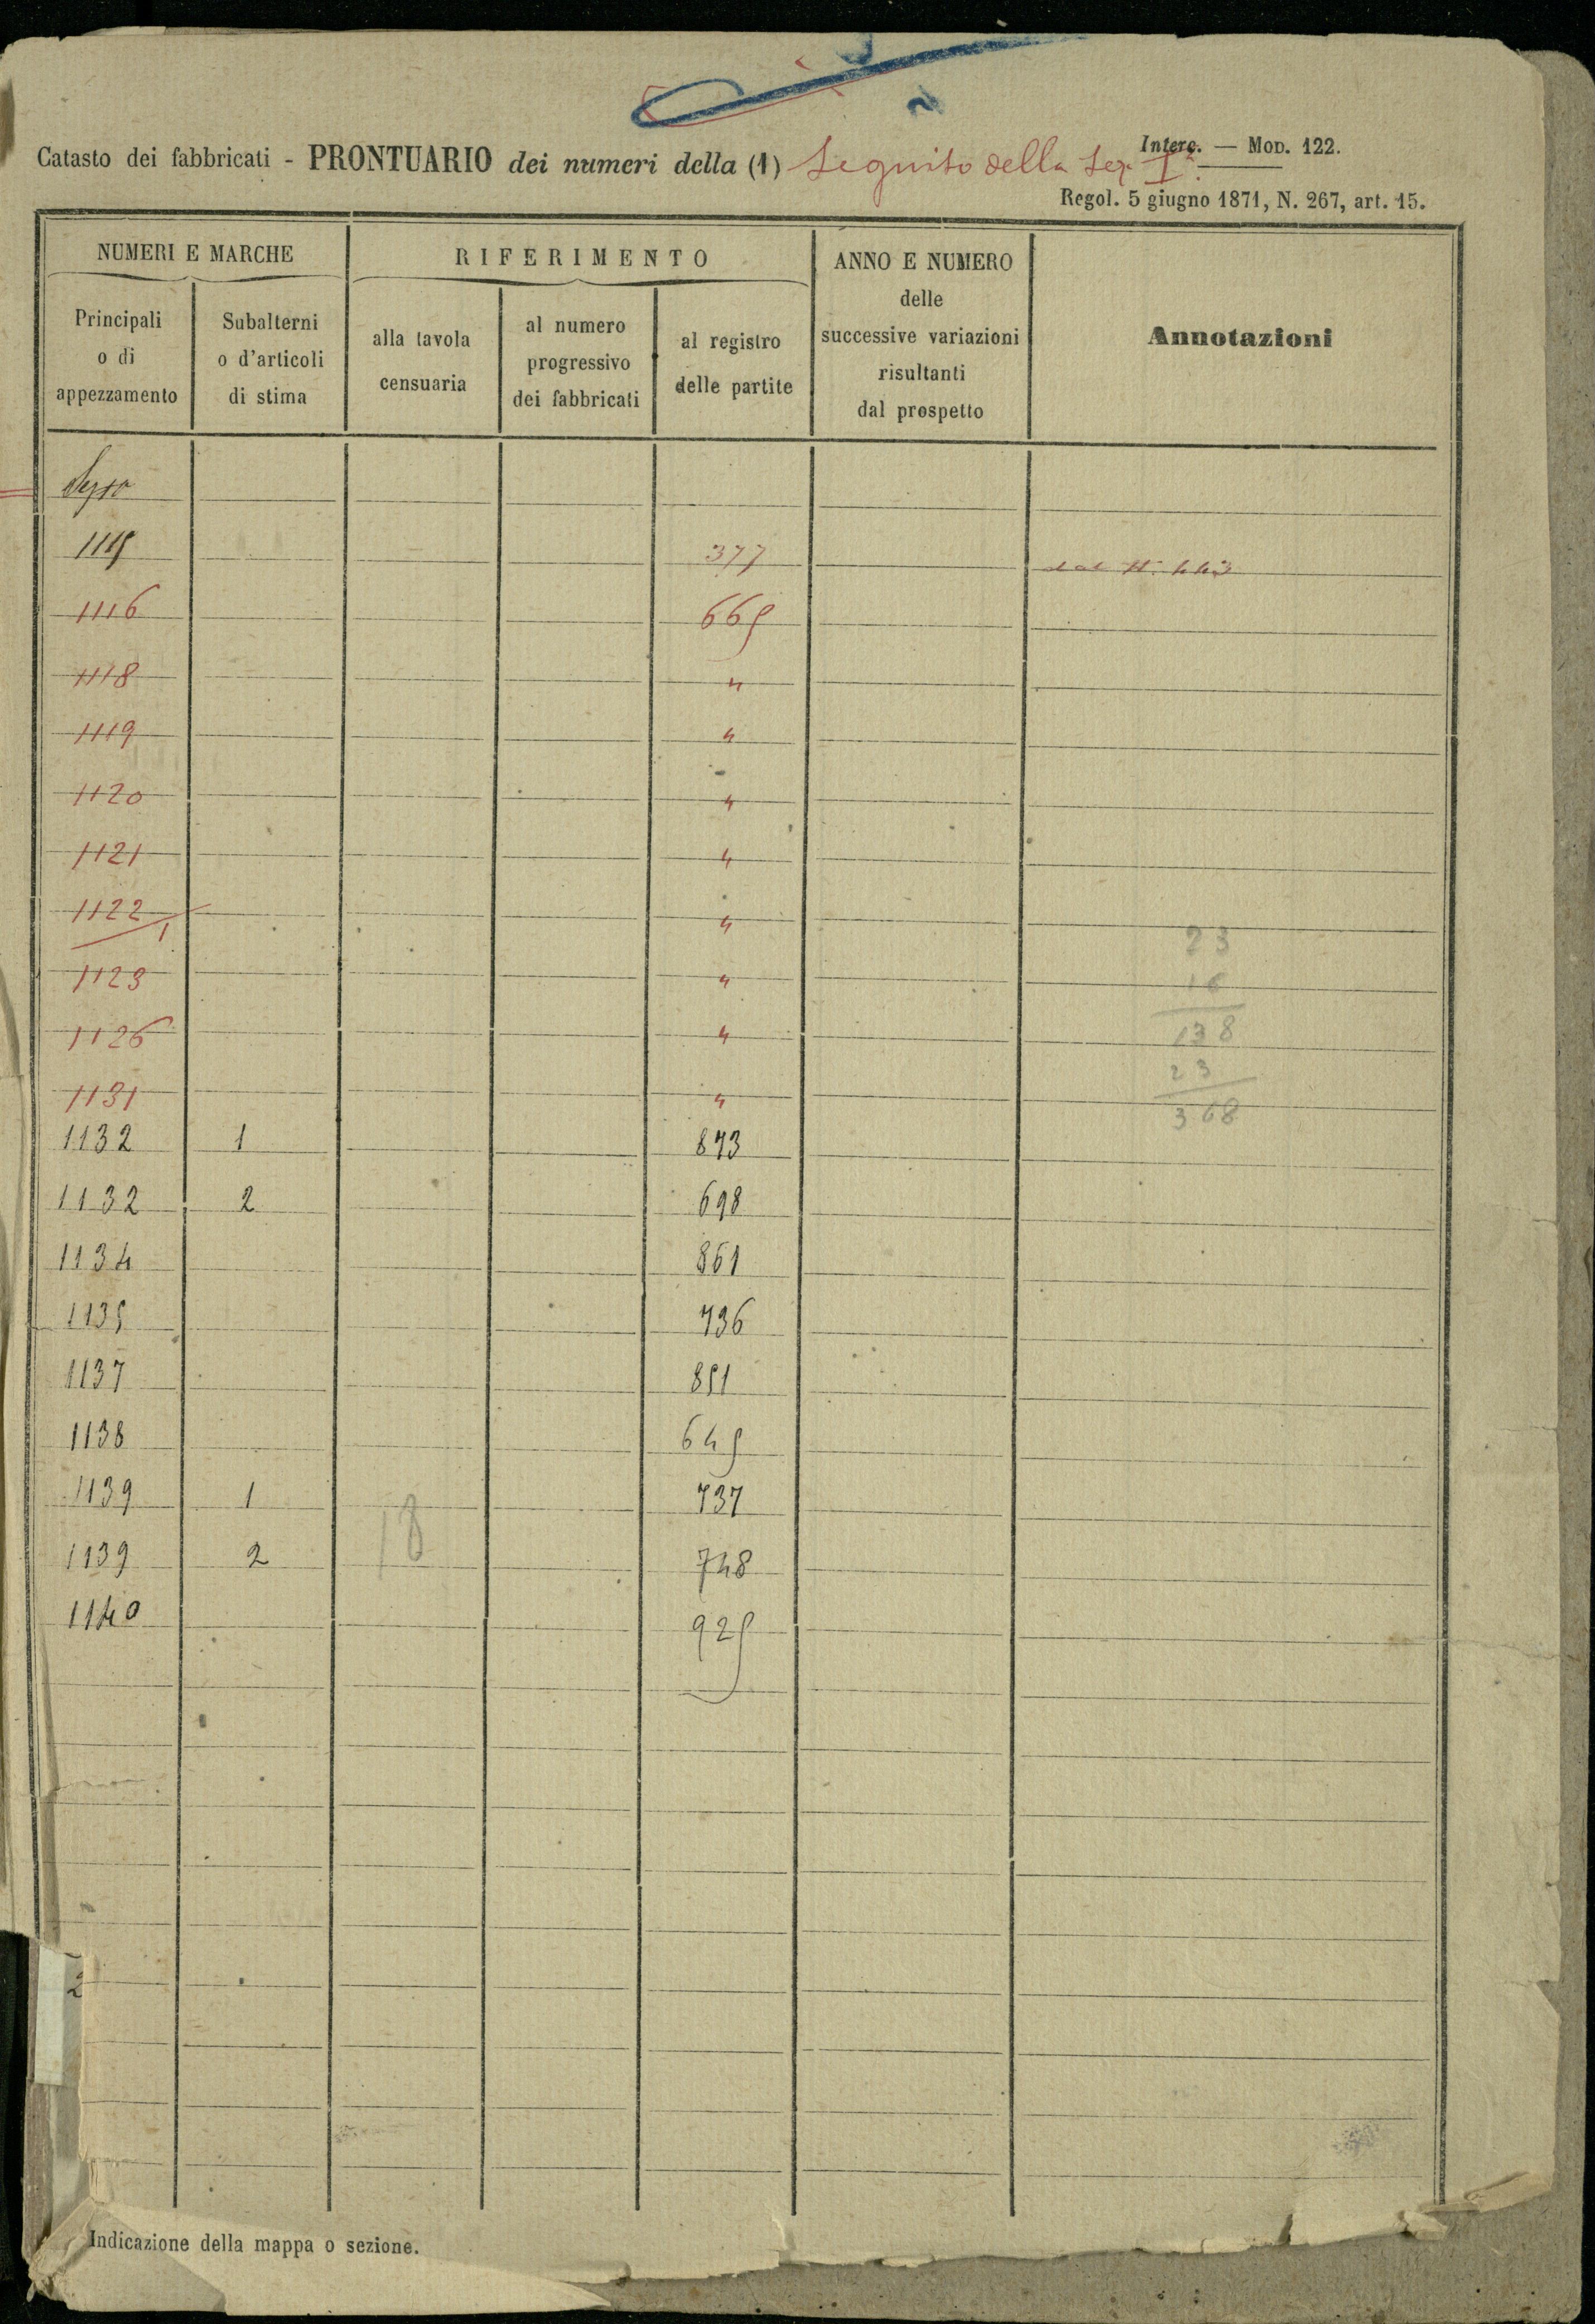 Interc. — Mod. 122.
Catasto dei fabbricati - PRONTUARIO dei numeri della (1) Seguito della Sez. Iª.
Regol. 5 giugno 1871, N. 267, art. 15.
NUMERI E MARCHE RIFERIMENTO ANNO E NUMERO delle successive variazioni risultanti dal prospetto Annotazioni
Principali o di appezzamento Subalterni o d'articoli di stima alla tavola censuaria al numero progressivo dei fabbricati al registro delle partite
1115 377 dal N. 443
1116 665
1118 "
1119 "
1120 "
1121 "
1122/1 "
23
1123 "
16
1126 "
138
23
1131 "
368
1132 1 873
1132 2 698
1134 861
1135 736
1137 851
1138 645
1139 1 737
18
1139 2 748
1140 925
2
Indicazione della mappa o sezione.